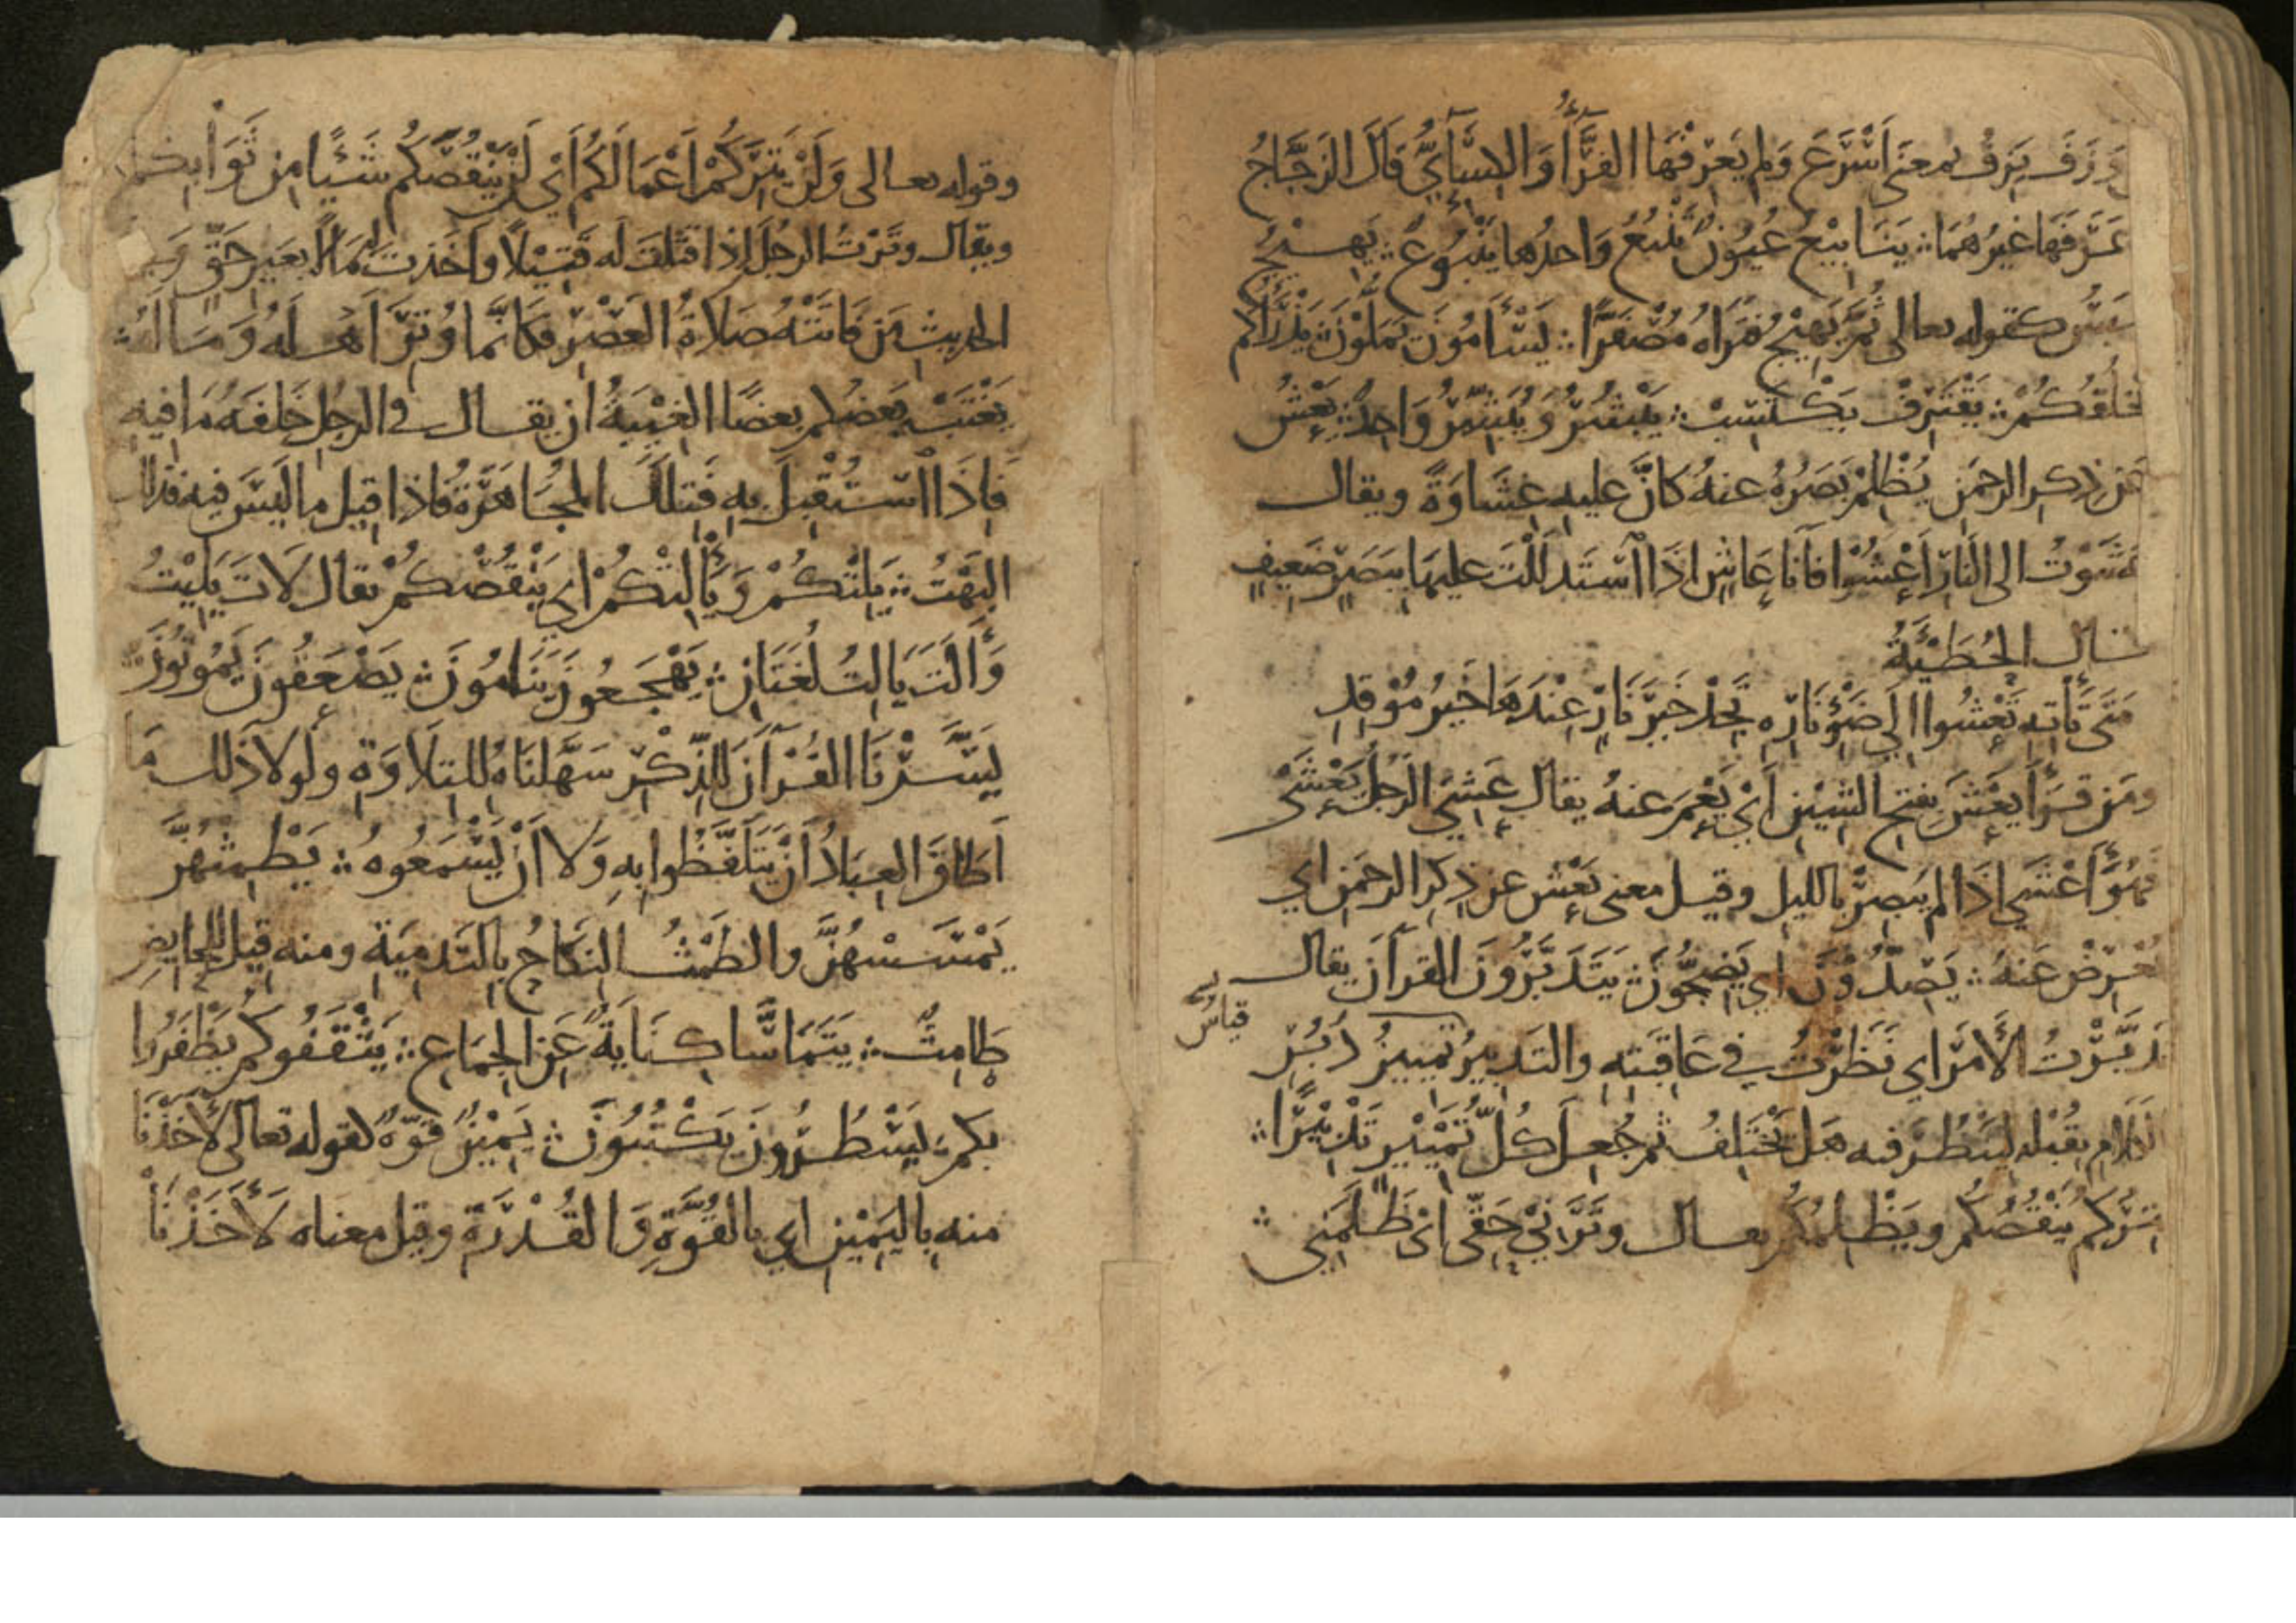 وَزَفَ يَزِفُ بمعنى اَسْرَعَ وَلم يَعرِفْهَا الفَرَّأُ وَ الكِسَأيُّ قَالَ الزَجَّاجُ
عَرَفَهَا غيرُهُمَا ؞ يَنَابيْعَ عُيُونٌ تَنْبُعُ وَاحدُها يَنْبُوعٌ ؞ يَهِيْجُ
يَيْبَسُ كقوله تعالى ثُمَّ يَهِيْجُ فَتَرَاهُ مُصْفَرًّا ؞ يَسْأَمُونَ يَمَلُّوْنَ ؞ يَذْرَأُكم
يَخلُقُكُمْ ؞ يَقْتَرِفْ يَكْتَسِبْ ؞ يَبْشُرُ وَ يُبَشِّرُ وَاحِدٌ ؞ يَعْشُ
عَن ذِكرِ الرحمَنِ يُظْلِمْ بَصَرُهُ عنهُ كَانَّ عليهِ غِشَاوَةً ويقال
عَشَوْتُ الى النَارِ اَعْشُوا فَاَنا عَاشٍ اذَا اَسْتَدلَلْتَ عليهَا بِبَصَرٍ ضَعِيفٍ
قال الحُطَيْئَةُ
مَتَى تَأتِهِ تَعْشُوا اِلى ضَوْءِ نَارِهِ تَجِدْ خَيرَ نَارٍ عِنْدَهَا خَيرُ مُوْقِدِ
ومَن قَرَأَ يعْشَ بِفتحِ الشِيْنِ اَيْ يَعْمَ عنهُ يقال عَشِيَ الرَجُلُ يَعْشَى
فَهُوَ اَعْشَى اذَا لم يُبصِرْ بالليلِ وقيل معنى يَعْشُ عن ذِكرِ الرحمَنِ اي
يُعْرِضْ عَنهُ ؞ يَصِدُّوْنَ اي يَضِجُّوْنَ ؞ يَتَدَبَّرُونَ القرآنَ يقال
قياسُ
تَدَبَّرْتُ الأمرَ اي نَظَرْتُ في عَاقِبَتِهِ والتَدبيرُ تمييزُ دُبُرِ
الكَلامِ بِقُبُلِه لِيَنظُرَ فيه هَل يَخْتَلِفُ ثم جُعِلَ كُلُّ تَمْيِيْزٍ تَدْبِيْرًا ؞
يَتِرَكُم يَنْقُصُكُم ويَظْلِمُكُم يقال وتَرَنِيْ حَقِّى اَىْ ظَلَمَنِي ؞
وقوله تعالى وَلَنْ يَتِرَكُمْ اَعْمَالَكُم اَىْ لَنْ يَنْقُصَكُم شَيْئًا مِن ثَوَابِكُم
ويقال وتَرْتُ الرجُلَ اِذا قَتَلتَ له قَتِيْلًا وَاَخَذتَ لَهُ مَالًا بِغيرِ حَقٍّ وَفي
الحديثِ مَن فَاتَتْهُ صَلاةُ العَصْرِ فكَانَّمَا وُتِرَ اَهلَهُ وَمَالَهُ ؞
يَغْتَبْ بَعضُكم بعضًا الغِيْبَةُ ان يقال في الرجُلِ خَلفَهُ مَا فيهِ
فَاِذَا اَستُقْبِلَ بِهِ فَتِلْكَ المُجَاهَرَةُ فَاِذا قِيلَ ما لَيسَ فيهِ فذلك
البَهْتُ ؞ يَلِتْكُمْ وَ يَأْلِتْكُمْ اي يَنْقُصْكُمْ يقال لَاتَ يَلِيْتُ
وَأَلَتَ يَالِتُ لُغَتَانِ ؞ يَهْجَعُونَ يَنَامُونَ ؞ يَصْعَقُونَ يَمُوتُوْنَ ؞
يَسَّرْنَا القُرْآنَ لِلذِّكْرِ سَهَّلنَاهُ للتِلَاوَةِ ولَولا ذلك مَا
اَطَاقَ العِبَادُ اَنْ يَتَلَفَّظُوا بِهِ وَلَا اَنْ يَسْمَعُوهُ ؞ يَطْمِثْهُنَّ
يَمْسَسْهُنَّ والطَمْثُ النِكَاحُ بِالتَدميَةِ ومنه قِيلَ لِلحَايضِ
طَامِثٌ ؞ يَتَمَاسَّا كِنَايَةٌ عَنِ الجمَاعِ ؞ يَثْقَفُوكُم يَظْفَرُوا
بِكم ؞ يَسْطُرُونَ يَكْتُبُوْنَ ؞ يَمِيْنٌ قُوّةٌ كقوله تعالى لَأَخَذْنَا
منهِ بِاليَمْيِنِ اي بالقُوَّةِ وَالقُدْرَةِ وقيل معناه لَأَخَذْنَا